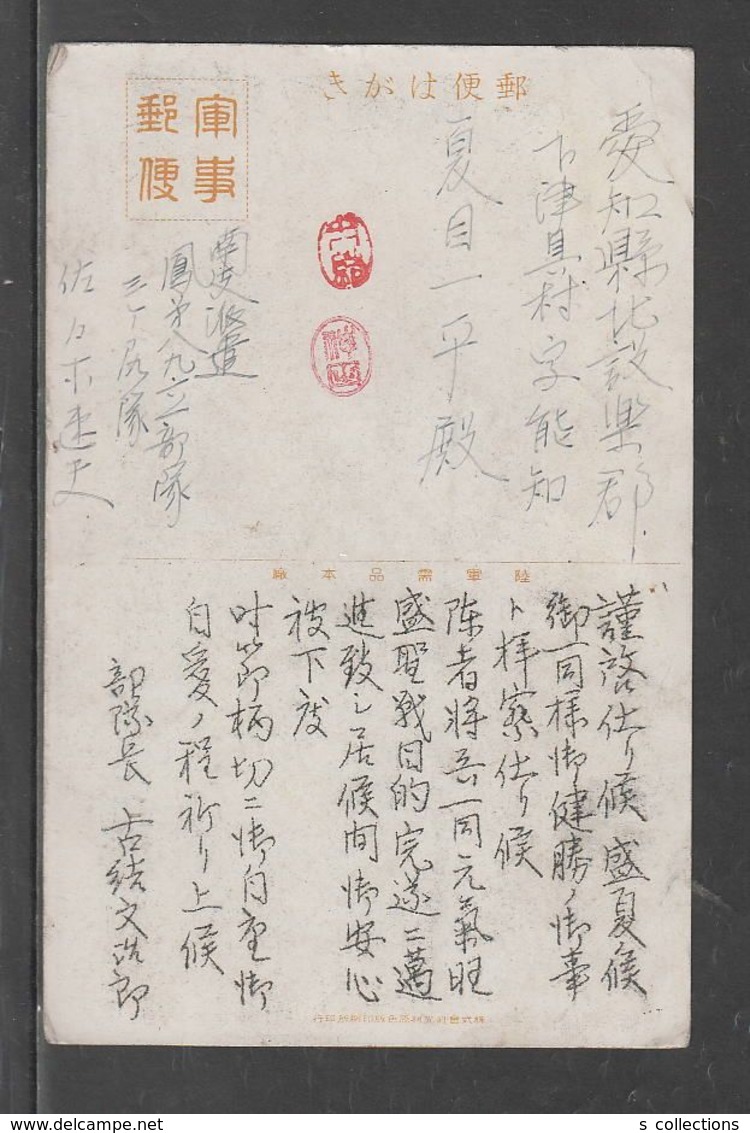 郵便はがき
軍事
郵便
愛知縣北設楽郡
下津具村字能知
夏目一平殿
南支派遣
鳳第八九六一部隊
佐々木速夫
陸軍需品本廠
謹啓仕リ候 盛夏ノ候
御一同様御健勝ノ御事
ト拝察仕リ候
陳者将兵一同元氣旺
盛聖戦目的完遂ニ邁
進致シ居候間御安心
被下度
時節柄切ニ御自重御
自愛ノ程祈リ上候
部隊長
s collections